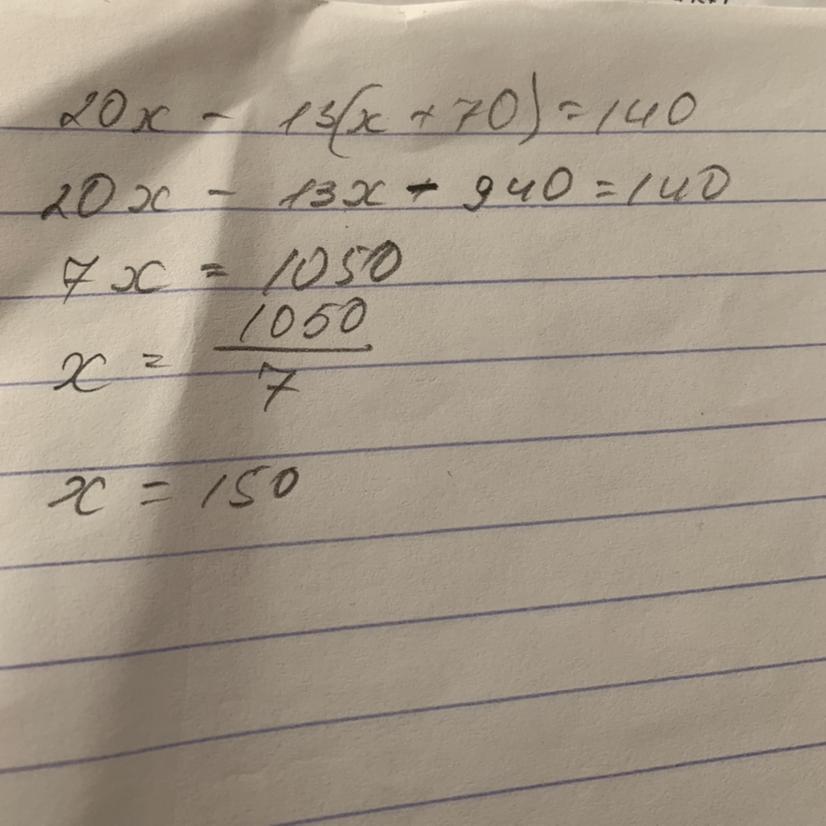 20x - 13(x + 70) = 140
20x - 13x - 940 = 140
7x = 1050
x = 1050/7
x = 150